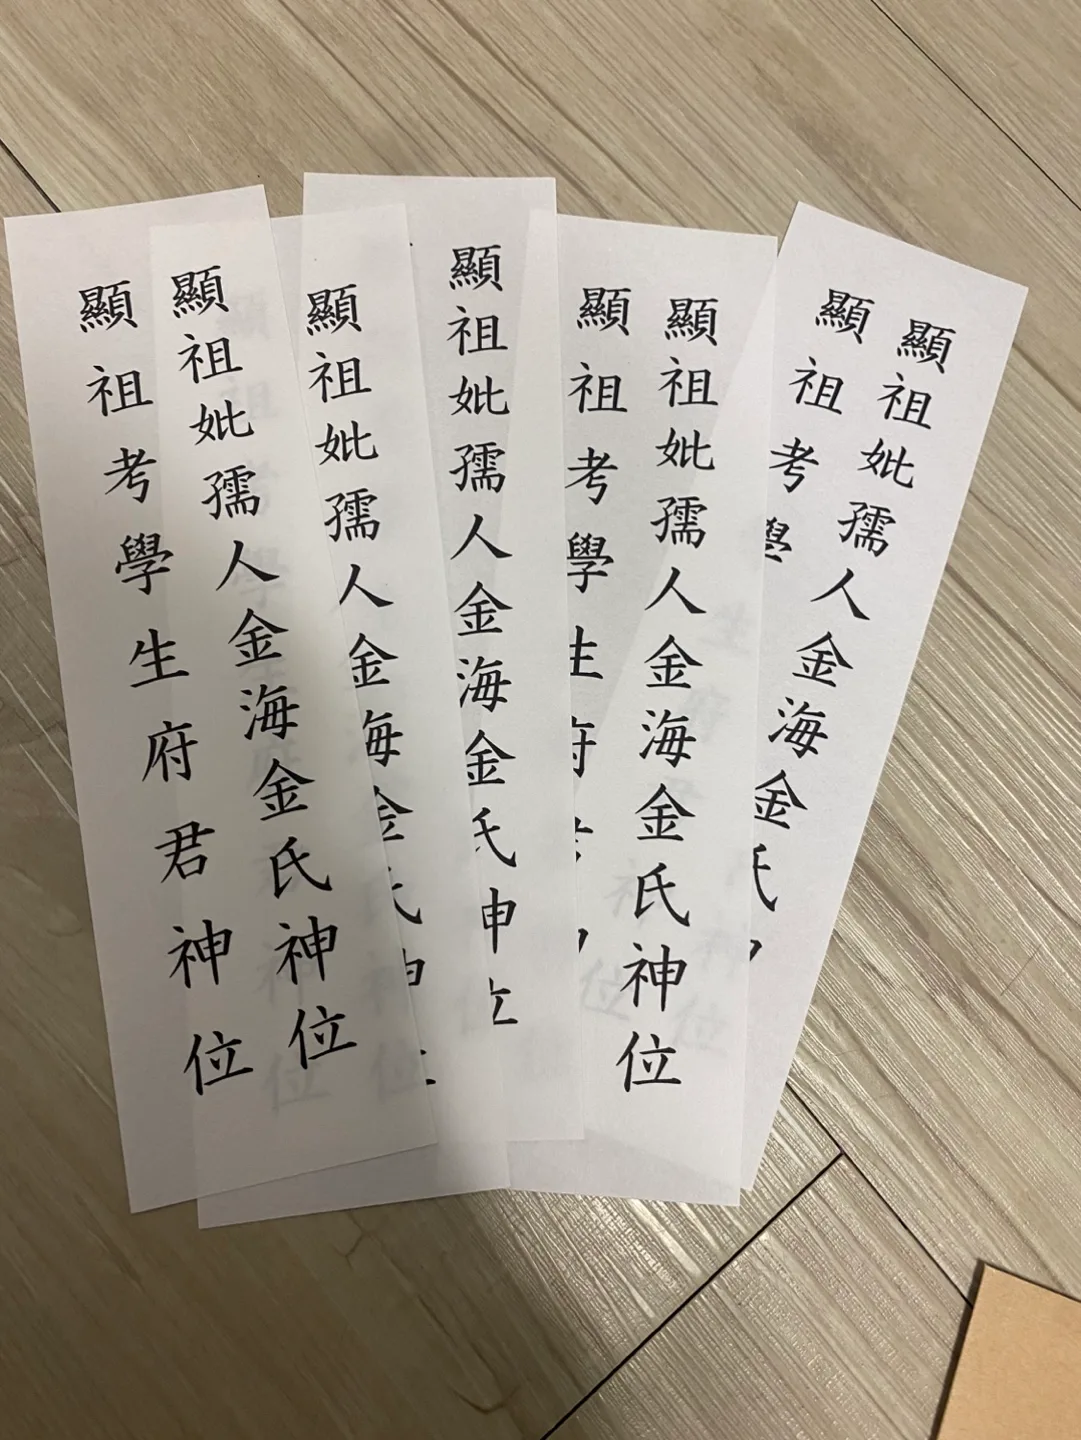 顯祖考學生府君神位
顯祖妣孺人金海金氏神位
顯祖妣孺人金海金氏
顯祖妣孺人金海金氏神位
顯祖考學生府
顯祖妣孺人金海金氏神位
顯祖考學
顯祖妣孺人金海金氏